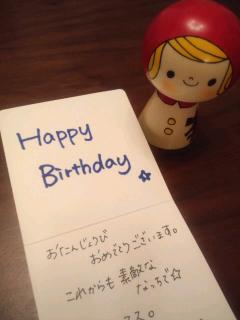 Happy
Birthday ☆
おたんじょうび
おめでとうございます。
これからも 素敵な
なっちで☆